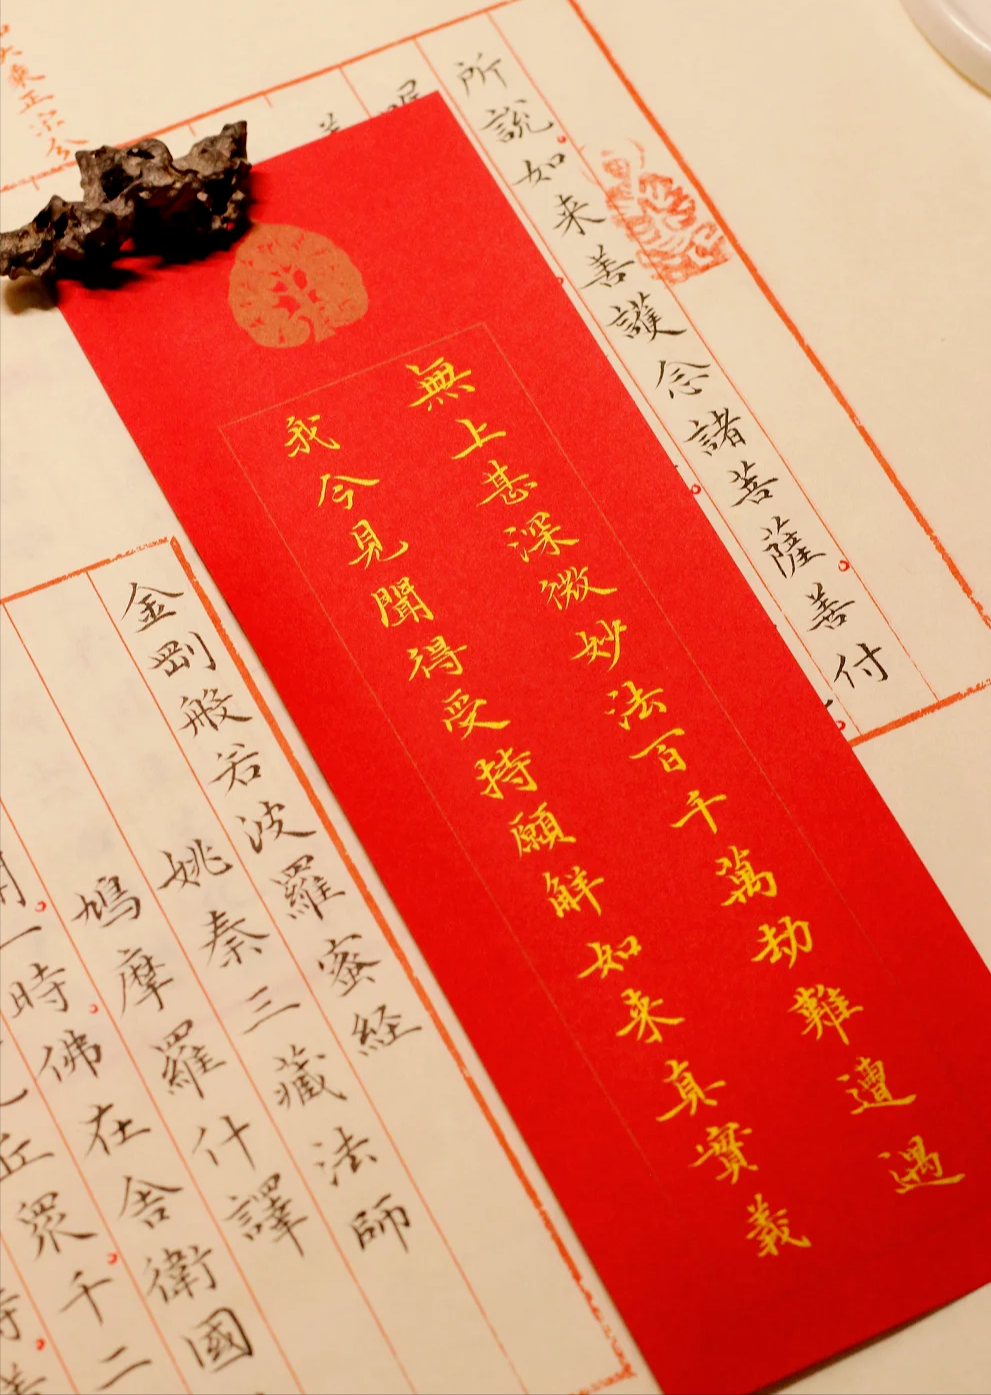 無上甚深微妙法百千萬劫難遭遇
我今見聞得受持願解如来真實義
所說如来善護念諸菩薩善付
金剛般若波羅蜜経
姚秦三藏法師
鳩摩羅什譯
一時佛在舍衛國
丘眾千二
大乘正宗分